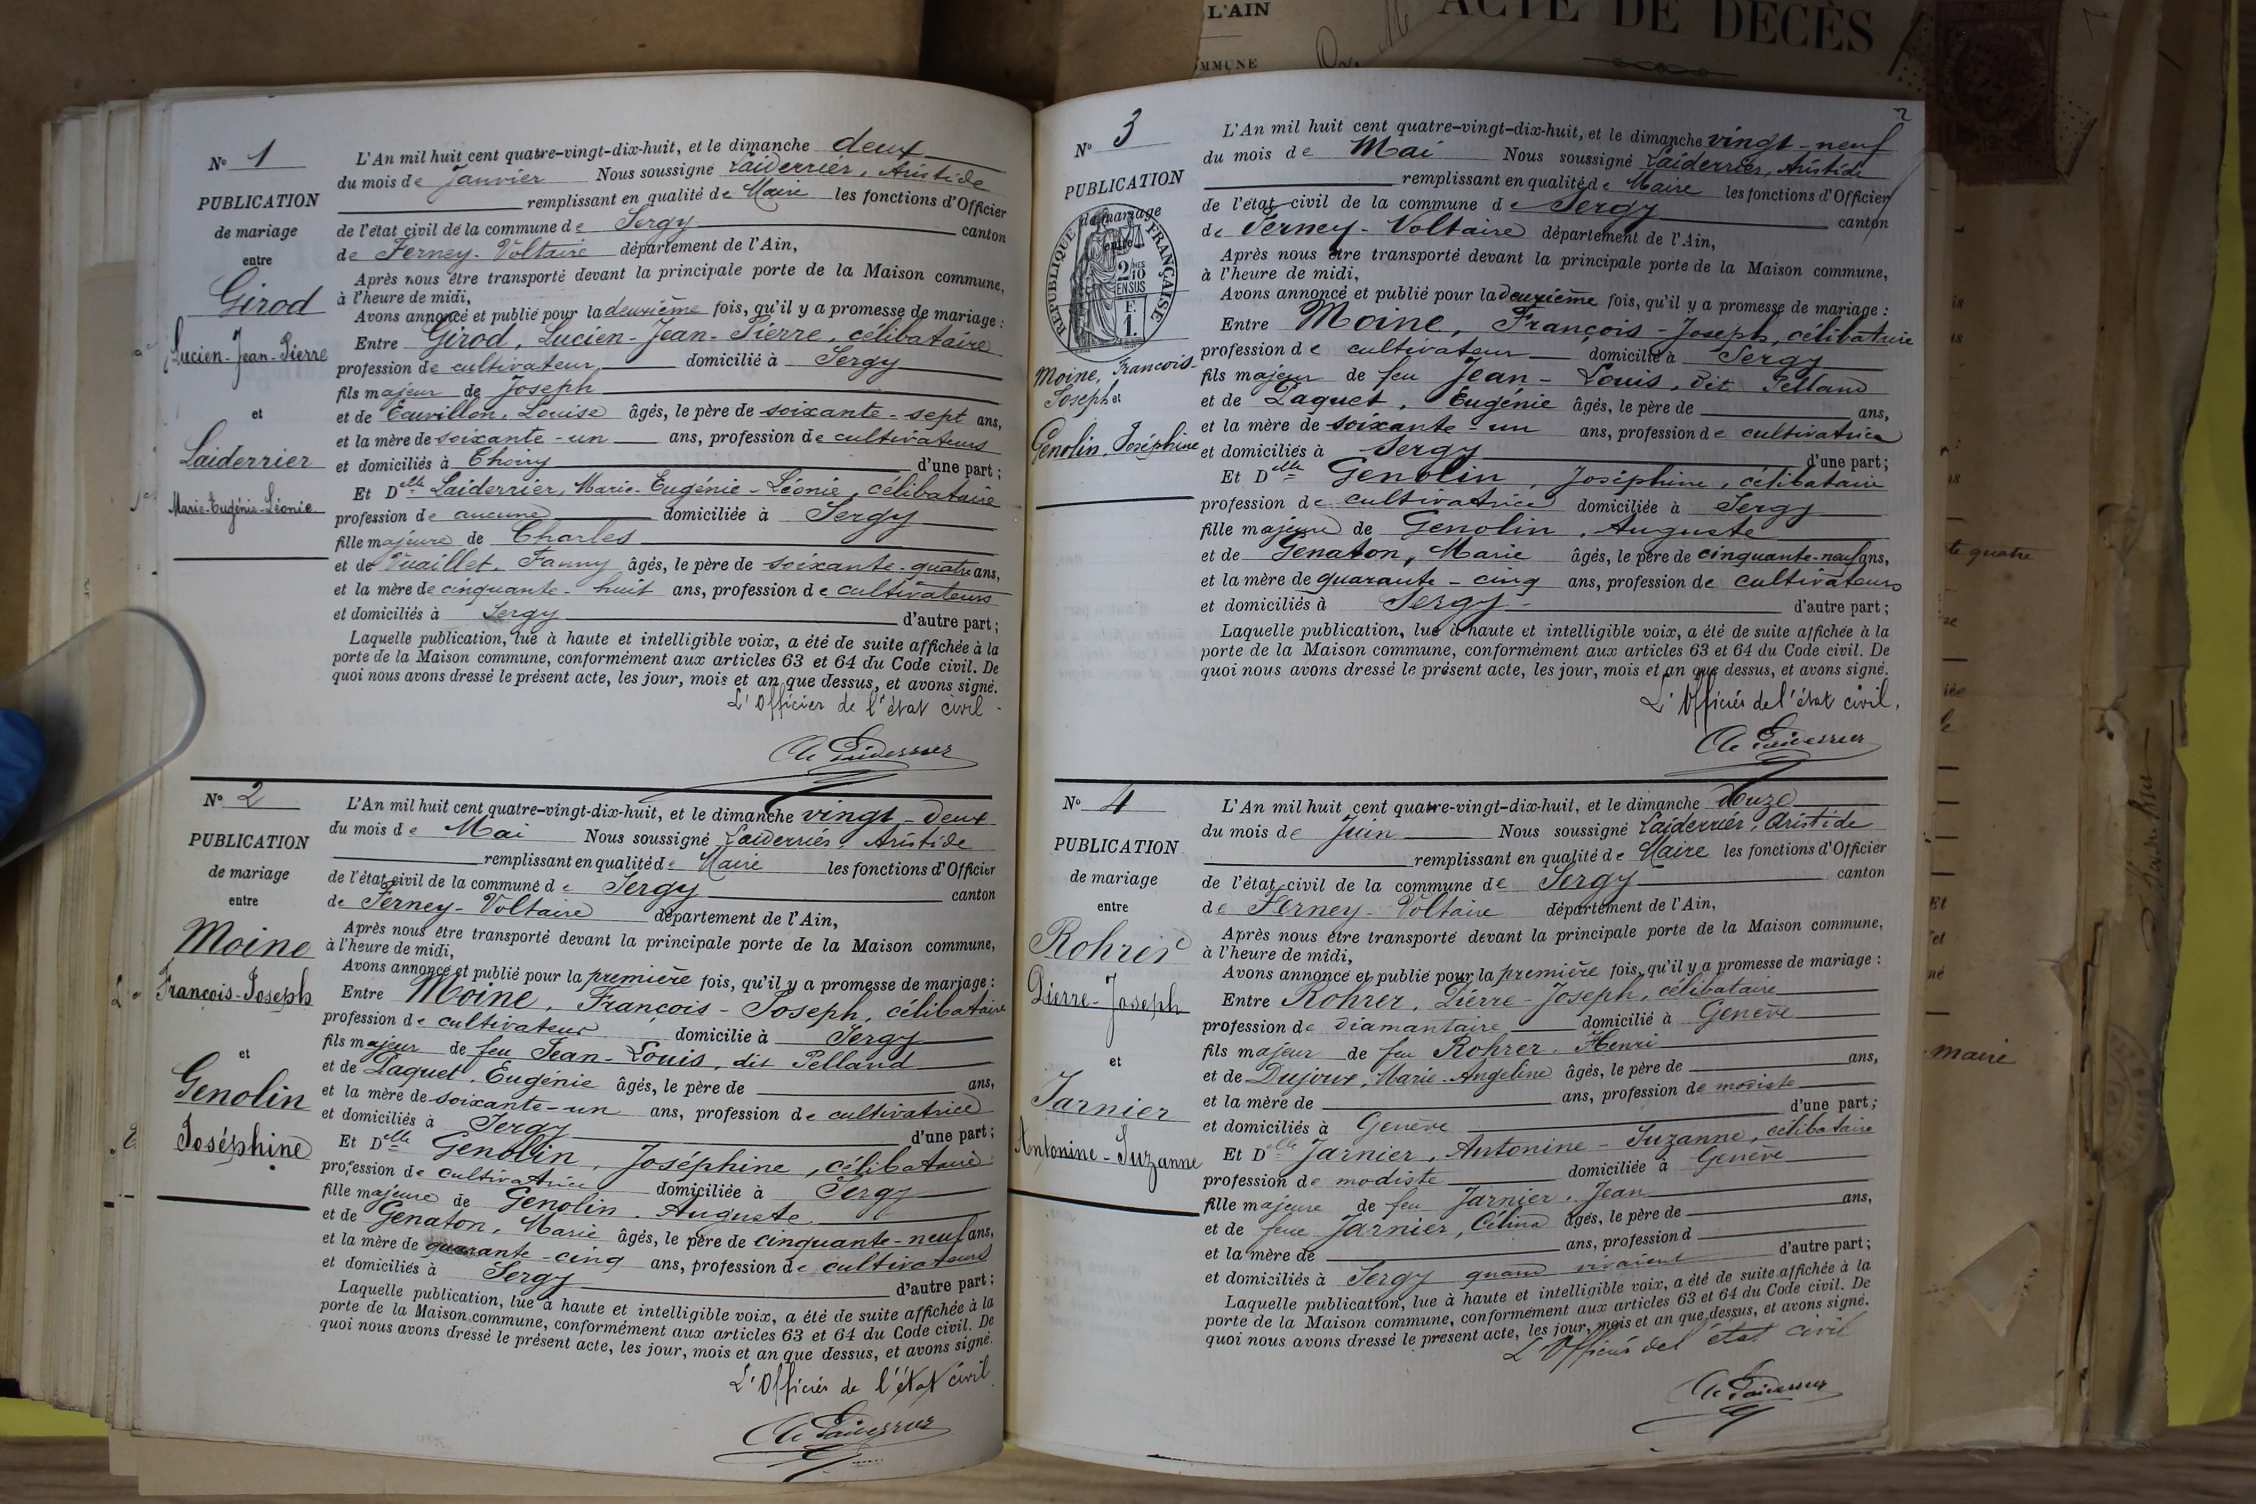 L'AIN
ACTE DE DÉCÈS
N° 1
PUBLICATION
de mariage
entre
Girod
Lucien-Jean-Pierre
et
Laiderrier
Marie-Eugénie-Léonie
L'An mil huit cent quatre-vingt-dix-huit, et le dimanche deux
du mois de Janvier Nous soussigné Laiderrier, Aristide
remplissant en qualité de Maire les fonctions d'Officier
de l'état civil de la commune de Sergy canton
de Ferney-Voltaire département de l'Ain,
Après nous être transporté devant la principale porte de la Maison commune,
à l'heure de midi,
Avons annoncé et publié pour la deuxième fois, qu'il y a promesse de mariage :
Entre Girod, Lucien-Jean-Pierre, célibataire
profession de cultivateur domicilié à Sergy
fils majeur de Joseph
et de Louise âgés, le père de soixante-sept ans,
et la mère de soixante-un ans, profession de cultivateurs
et domiciliés à Thoiry d'une part ;
Et Delle Laiderrier, Marie-Eugénie-Léonie, célibataire
profession de aucune domiciliée à Sergy
fille majeure de Charles
et de Vuaillet, Fanny âgés, le père de soixante-quatre ans,
et la mère de cinquante-huit ans, profession de cultivateurs
et domiciliés à Sergy d'autre part ;
Laquelle publication, lue à haute et intelligible voix, a été de suite affichée à la
porte de la Maison commune, conformément aux articles 63 et 64 du Code civil. De
quoi nous avons dressé le présent acte, les jour, mois et an que dessus, et avons signé.
L'Officier de l'état civil
Ae Laiderrier
N° 2
PUBLICATION
de mariage
entre
Moine
François-Joseph
et
Genolin
Joséphine
L'An mil huit cent quatre-vingt-dix-huit, et le dimanche vingt-deux
du mois de Mai Nous soussigné Laiderrier, Aristide
remplissant en qualité de Maire les fonctions d'Officier
de l'état civil de la commune de Sergy canton
de Ferney-Voltaire département de l'Ain,
Après nous être transporté devant la principale porte de la Maison commune,
à l'heure de midi,
Avons annoncé et publié pour la première fois, qu'il y a promesse de mariage :
Entre Moine, François-Joseph, célibataire
profession de cultivateur domicilié à Sergy
fils majeur de feu Jean-Louis, dit Pelland
et de Paquet, Eugénie âgés, le père de ans,
et la mère de soixante-un ans, profession de cultivatrice
et domiciliés à Sergy d'une part ;
Et Delle Genolin, Joséphine, célibataire
profession de cultivatrice domiciliée à Sergy
fille majeure de Genolin, Auguste
et de Genaton, Marie âgés, le père de cinquante-neuf ans,
et la mère de quarante-cinq ans, profession de cultivateurs
et domiciliés à Sergy d'autre part ;
Laquelle publication, lue à haute et intelligible voix, a été de suite affichée à la
porte de la Maison commune, conformément aux articles 63 et 64 du Code civil. De
quoi nous avons dressé le présent acte, les jour, mois et an que dessus, et avons signé.
L'Officier de l'état civil
Ae Laiderrier
2
N° 3
PUBLICATION
de mariage
entre
RÉPUBLIQUE FRANÇAISE
2/10 EN SUS
F. 1.
Moine, François-
Joseph et
Genolin, Joséphine
L'An mil huit cent quatre-vingt-dix-huit, et le dimanche vingt-neuf
du mois de Mai Nous soussigné Laiderrier, Aristide
remplissant en qualité de Maire les fonctions d'Officier
de l'état civil de la commune de Sergy canton
de Ferney-Voltaire département de l'Ain,
Après nous être transporté devant la principale porte de la Maison commune,
à l'heure de midi,
Avons annoncé et publié pour la deuxième fois, qu'il y a promesse de mariage :
Entre Moine, François-Joseph, célibataire
profession de cultivateur domicilié à Sergy
fils majeur de feu Jean-Louis, dit Pelland
et de Paquet, Eugénie âgés, le père de ans,
et la mère de soixante-un ans, profession de cultivatrice
et domiciliés à Sergy d'une part ;
Et Delle Genolin, Joséphine, célibataire
profession de cultivatrice domiciliée à Sergy
fille majeure de Genolin, Auguste
et de Genaton, Marie âgés, le père de cinquante-neuf ans,
et la mère de quarante-cinq ans, profession de cultivateurs
et domiciliés à Sergy d'autre part ;
Laquelle publication, lue à haute et intelligible voix, a été de suite affichée à la
porte de la Maison commune, conformément aux articles 63 et 64 du Code civil. De
quoi nous avons dressé le présent acte, les jour, mois et an que dessus, et avons signé.
L'Officier de l'état civil.
Ae Laiderrier
N° 4
PUBLICATION
de mariage
entre
Rohrer
Pierre-Joseph
et
Jarnier
Antonine-Suzanne
L'An mil huit cent quatre-vingt-dix-huit, et le dimanche douze
du mois de Juin Nous soussigné Laiderrier, Aristide
remplissant en qualité de Maire les fonctions d'Officier
de l'état civil de la commune de Sergy canton
de Ferney-Voltaire département de l'Ain,
Après nous être transporté devant la principale porte de la Maison commune,
à l'heure de midi,
Avons annoncé et publié pour la première fois, qu'il y a promesse de mariage :
Entre Rohrer, Pierre-Joseph, célibataire
profession de diamantaire domicilié à Genève
fils majeur de feu Rohrer, Henri
et de Dujoux, Marie-Angeline âgés, le père de ans,
et la mère de ans, profession de modiste
et domiciliés à Genève d'une part ;
Et Delle Jarnier, Antonine-Suzanne, célibataire
profession de modiste domiciliée à Genève
fille majeure de feu Jarnier, Jean
et de feue Jarnier, Célina âgés, le père de ans,
et la mère de ans, profession d
et domiciliés à Sergy quand vivaient d'autre part ;
Laquelle publication, lue à haute et intelligible voix, a été de suite affichée à la
porte de la Maison commune, conformément aux articles 63 et 64 du Code civil. De
quoi nous avons dressé le présent acte, les jour, mois et an que dessus, et avons signé.
L'Officier de l'état civil
Ae Laiderrier
quatre
maire